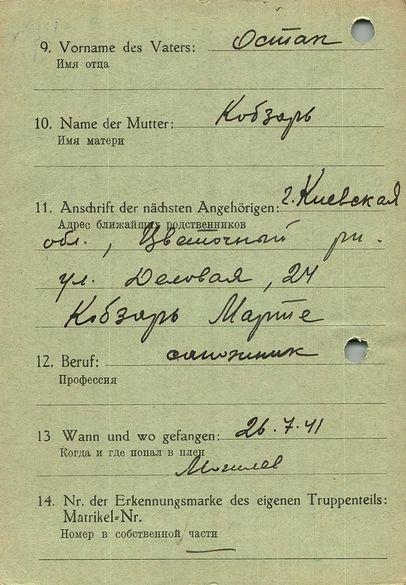 9. Vorname des Vaters: Остап
Имя отца
10. Name der Mutter: Кобзарь
Имя матери
11. Anschrift der nächsten Angehörigen: г. Киевская
Адрес ближайших родственников
обл., Цветочный рн.
ул. Деловая, 24
Кобзарь Марте
12. Beruf: сапожник
Профессия
13 Wann und wo gefangen: 26.7.41
Когда и где попал в плен
Могилев
14. Nr. der Erkennungsmarke des eigenen Truppenteils:
Matrikel-Nr.
Номер в собственной части —